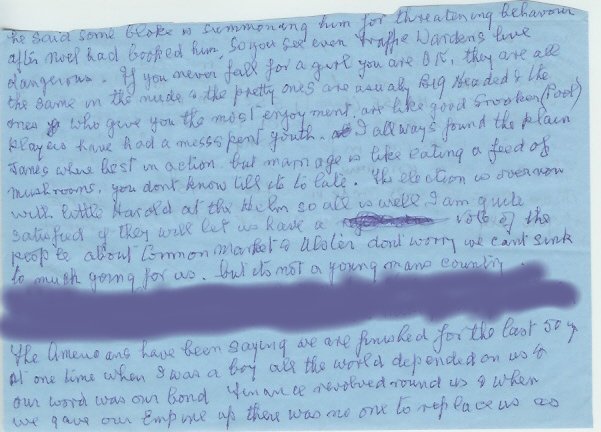 he said some bloke is summoning him for threatening behaviour
after Noel had booked him, so you see even Traffic Wardens live
dangerous. If you never fall for a girl you are OK, they are all
the same in the nude & the pretty ones are usualy Big Headed & the
ones who give you the most enjoyment, are like good Snooker (Pool)
players have had a messspent youth. I allways found the plain
Janes where best in action. but marriage is like eating a feed of
mushrooms, you dont know till its to late. The election is over now
with little Harold at the Helm so all is well I am quite
satisfied if they will let us have a vote of the
people about Common Market & Ulster dont worry we cant sink
to much going for us. but its not a young mans country.
The Americans have been saying we are finished for the last 50 y
At one time when I was a boy all the world depended on us &
our word was our bond Finance revolved round us & when
we gave our Empire up there was no one to replace us as